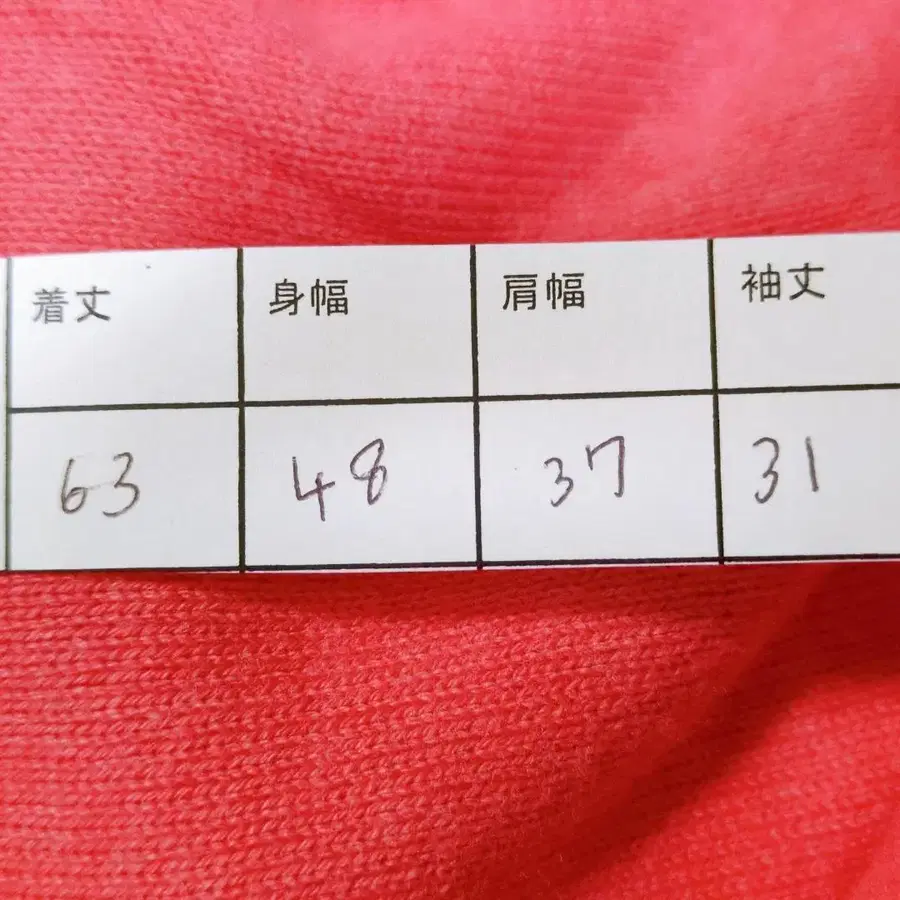 着丈 身幅 肩幅 袖丈
63 48 37 31